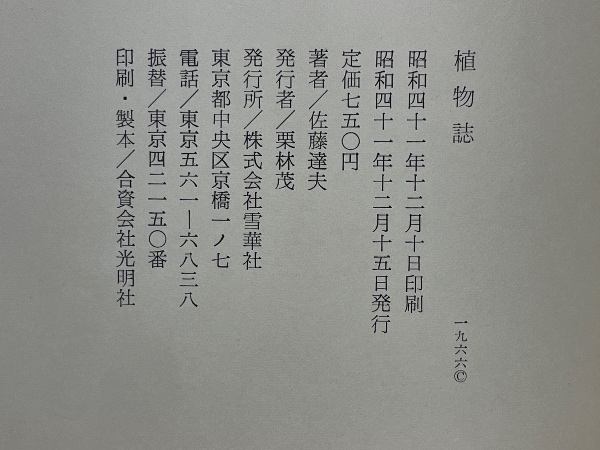 植物誌
一九六六©
昭和四十一年十二月十日印刷
昭和四十一年十二月十五日発行
定価七五〇円
著者／佐藤達夫
発行者／栗林茂
発行所／株式会社雪華社
東京都中央区京橋一ノ七
電話／東京五六一—六八三八
振替／東京四二一五〇番
印刷・製本／合資会社光明社